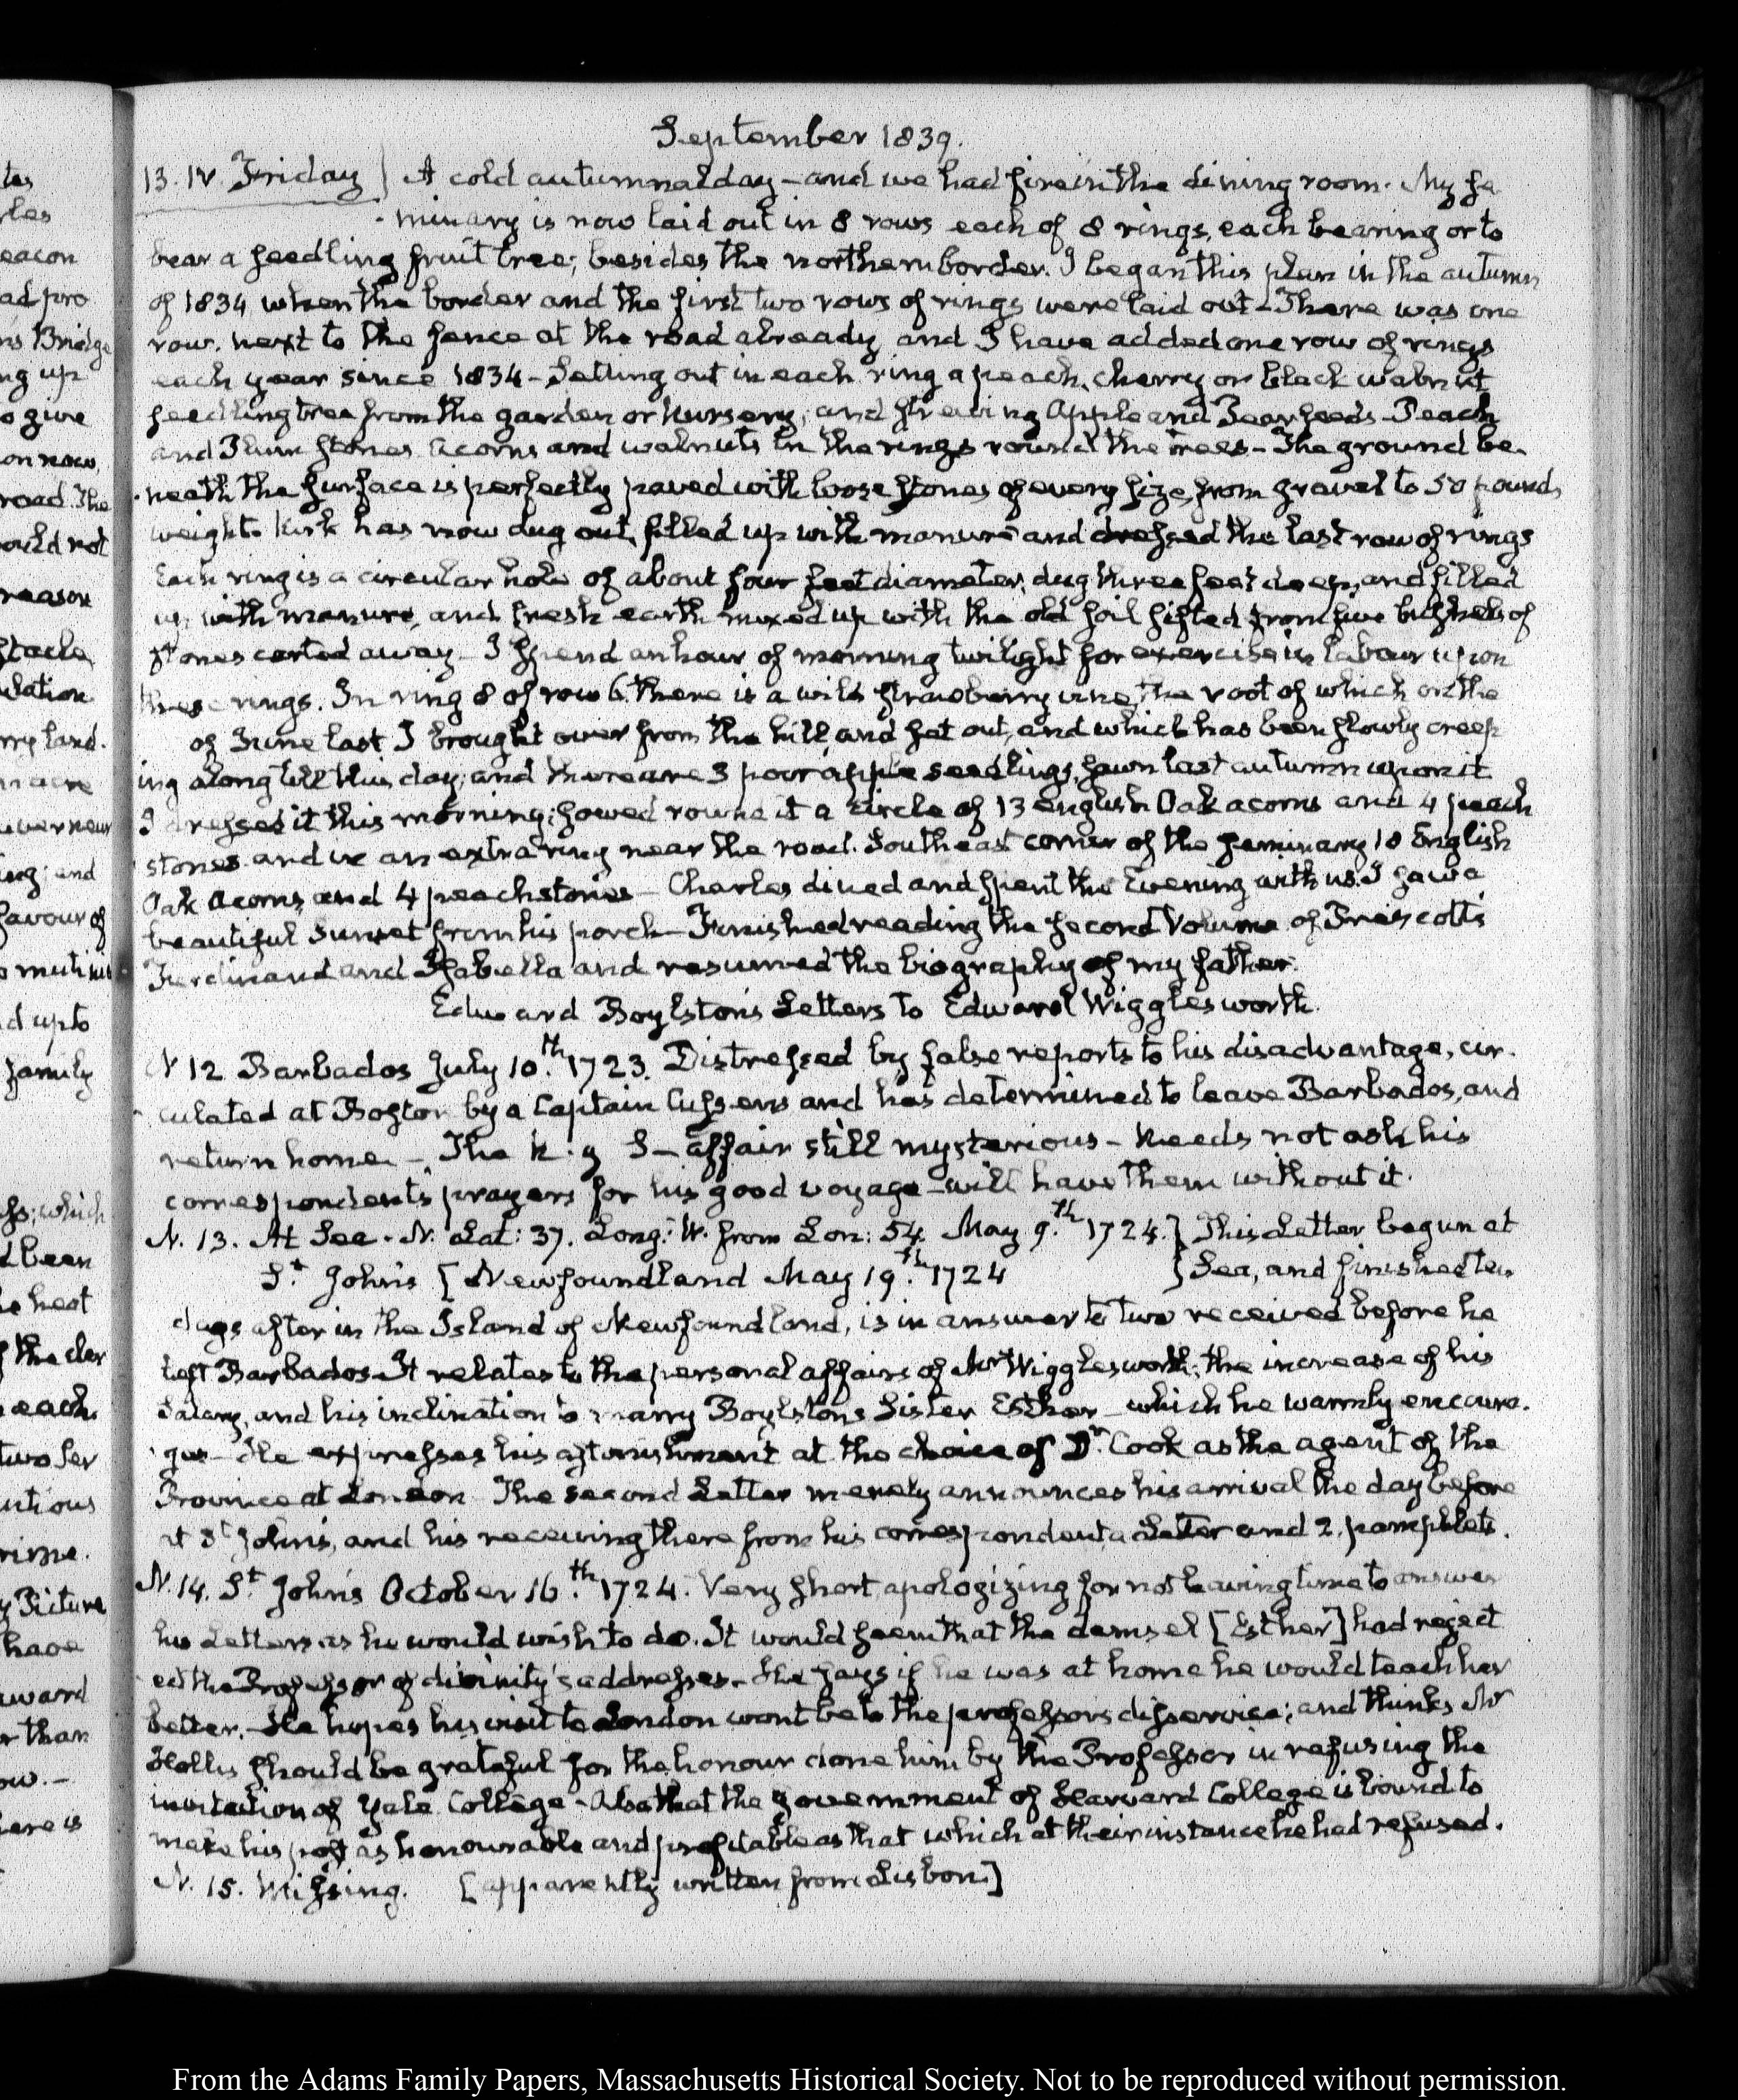 September 1839.
13. IV. Friday} A cold autumnal day – and we had fire in the dining room. My Se-
minary is now laid out in 8 rows each of 8 rings, each bearing or to
bear a seedling fruit tree; besides the northern border. I began this plan in the autumn
of 1834 when the border and the first two rows of rings were laid out – There was one
row next to the fence at the road already and I have added one row of rings
each year since 1834 – Setting out in each ring a peach, cherry or black walnut
seedling tree from the garden or Nursery; and strewing Apple and Pear seeds – Peach
and Plum stones acorns and walnuts in the rings round the trees – The ground be-
neath the surface is perfectly paved with loose stones of every size, from gravel to 50 pounds
weight. Kirk has now dug out, filled up with manure and dressed the last row of rings
Each ring is a circular hole of about four feet diameter, dug three feet deep, and filled
up with manure, and fresh earth mixed up with the old soil sifted from five bushels of
stones carted away – I spend an hour of morning twilight for exercise in labour upon
these rings. In ring 8 of row 6. there is a wild strawberry vine, the root of which on the
of June last I brought over from the hill, and set out, and which has been slowly creep
ing along till this day; and there are 3 poor apple seedlings, sown last autumn upon it
I dressed it this morning; sowed round it a circle of 13 english Oak acorns and 4 peach
stones and in an extra ring near the road. South east corner of the seminary 18 English
Oak Acorns, and 4 peach stones – Charles dined and spent the Evening with us. I saw a
beautiful Sunset from his porch – Finished reading the second Volume of Prescott's
Ferdinand and Isabella and resumed the biography of my father.
Edward Boylston's Letters to Edward Wigglesworth.
N 12 Barbados July 10.th 1723. Distressed by false reports to his disadvantage, cir-
culated at Boston by a Captain Cussens and has determined to leave Barbados, and
return home – The K. g S – affair still mysterious – Needs not ask his
correspondent's prayers for his good voyage – will have them without it.
N. 13. At Sea. N. Lat: 37. Long: W. from Lon: 54. May 9.th 1724.} This Letter begun at
St. John's [Newfoundland May 19.th 1724 } Sea, and finished ten
days after in the Island of Newfoundland, is in answer to two received before he
left Barbados – It relates to the personal affairs of Mr Wigglesworth; the increase of his
Salary, and his inclination to marry Boylston's Sister Esther – which he warmly encoura-
ges – He expresses his astonishment at the choice of Dr. Cook as the agent of the
Province at London The second Letter merely announces his arrival the day before
at St John's, and his receiving there from his correspondent a Letter and 2. pamphlets.
N. 14. St John's October 16.th 1724. Very short, apologizing for not having time to answer
his Letters as he would wish to do. It would seem that the damsel [Esther] had reject
ed the Professor of divinity's addresses – He says if he was at home he would teach her
better. – He hopes his visit to London wont be to the professors disservice; and thinks Mr
Hollis should be grateful for the honour done him by the Professor in refusing the
invitation of Yale College – Also that the government of Harvard College is bound to
make his post as honourable and profitable as that which at their instance he had refused.
N. 15. Missing. [apparently written from Lisbon]
From the Adams Family Papers, Massachusetts Historical Society. Not to be reproduced without permission.